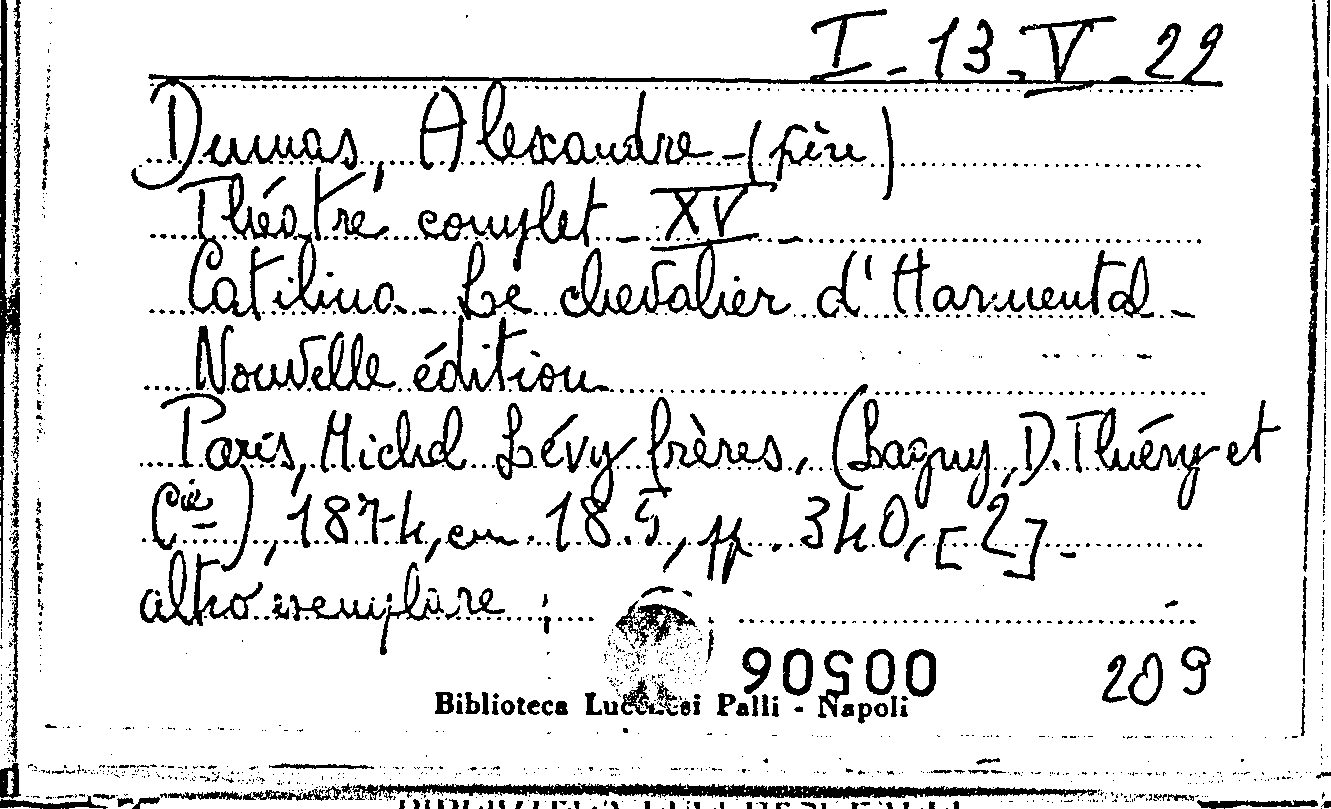 I - 13 - V - 22
Dumas, Alexandre - (père)
Théâtre complet - XV -
Catilina - Le chevalier d'Harmental -
Nouvelle édition
Paris, Michel Lévy frères, (Lagny, D. Thiéry et
Cie), 1874, cm. 18.5, pp. 340, [2] -
altro esemplare ;
00506
209
Biblioteca Lucchesi Palli - Napoli